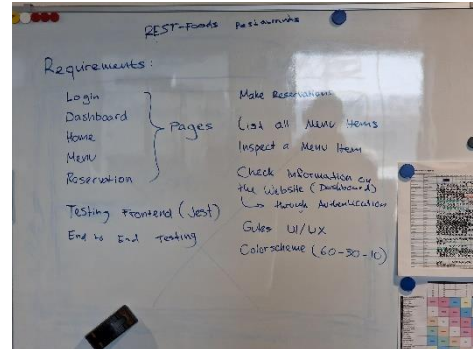 REST-Foods Restaurants
Requirements:
Login
Dashboard
Home
Menu
Reservation
Pages
Testing Frontend (Jest)
End to End Testing
Make Reservations
List all Menu Items
Inspect a Menu Item
Check Information on
the Website (Dashboard)
through Authentication
Gutes UI/UX
Colorscheme (60-30-10)